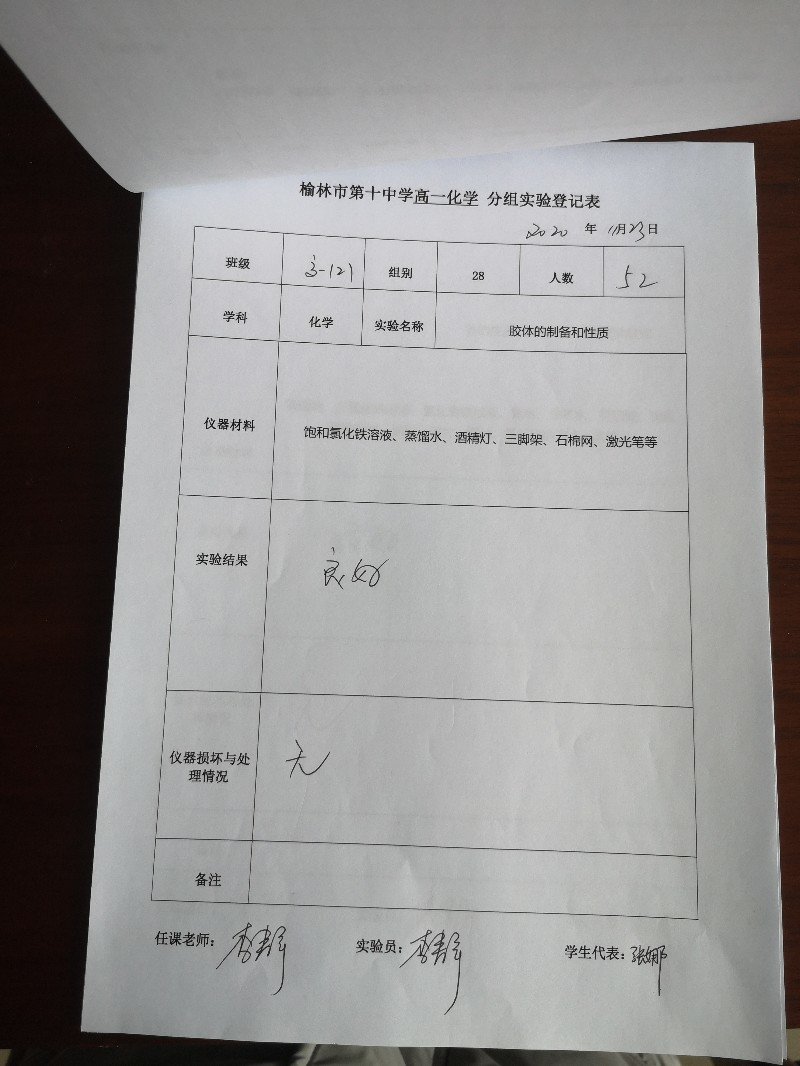 榆林市第十中学高一化学 分组实验登记表
2020 年 11月23日
班级 组别 28 人数 52
学科 化学 实验名称 胶体的制备和性质
仪器材料 饱和氯化铁溶液、蒸馏水、酒精灯、三脚架、石棉网、激光笔等
实验结果 良好
仪器损坏与处
理情况 无
备注
任课老师： 实验员： 学生代表：张娜